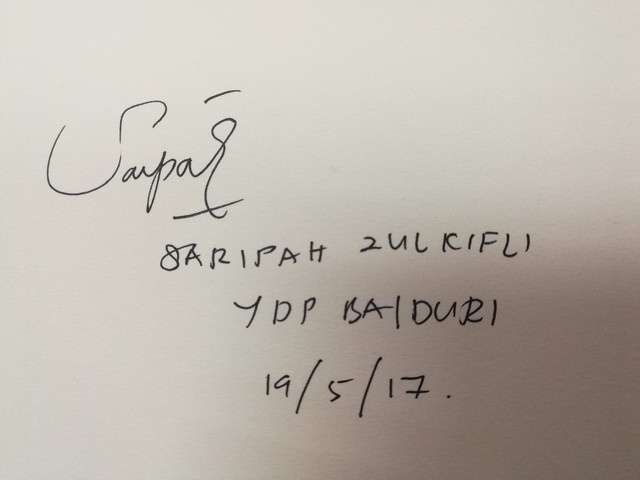 Saripah
SARIPAH ZULKIFLI
YDP BAIDURI
19/5/17.